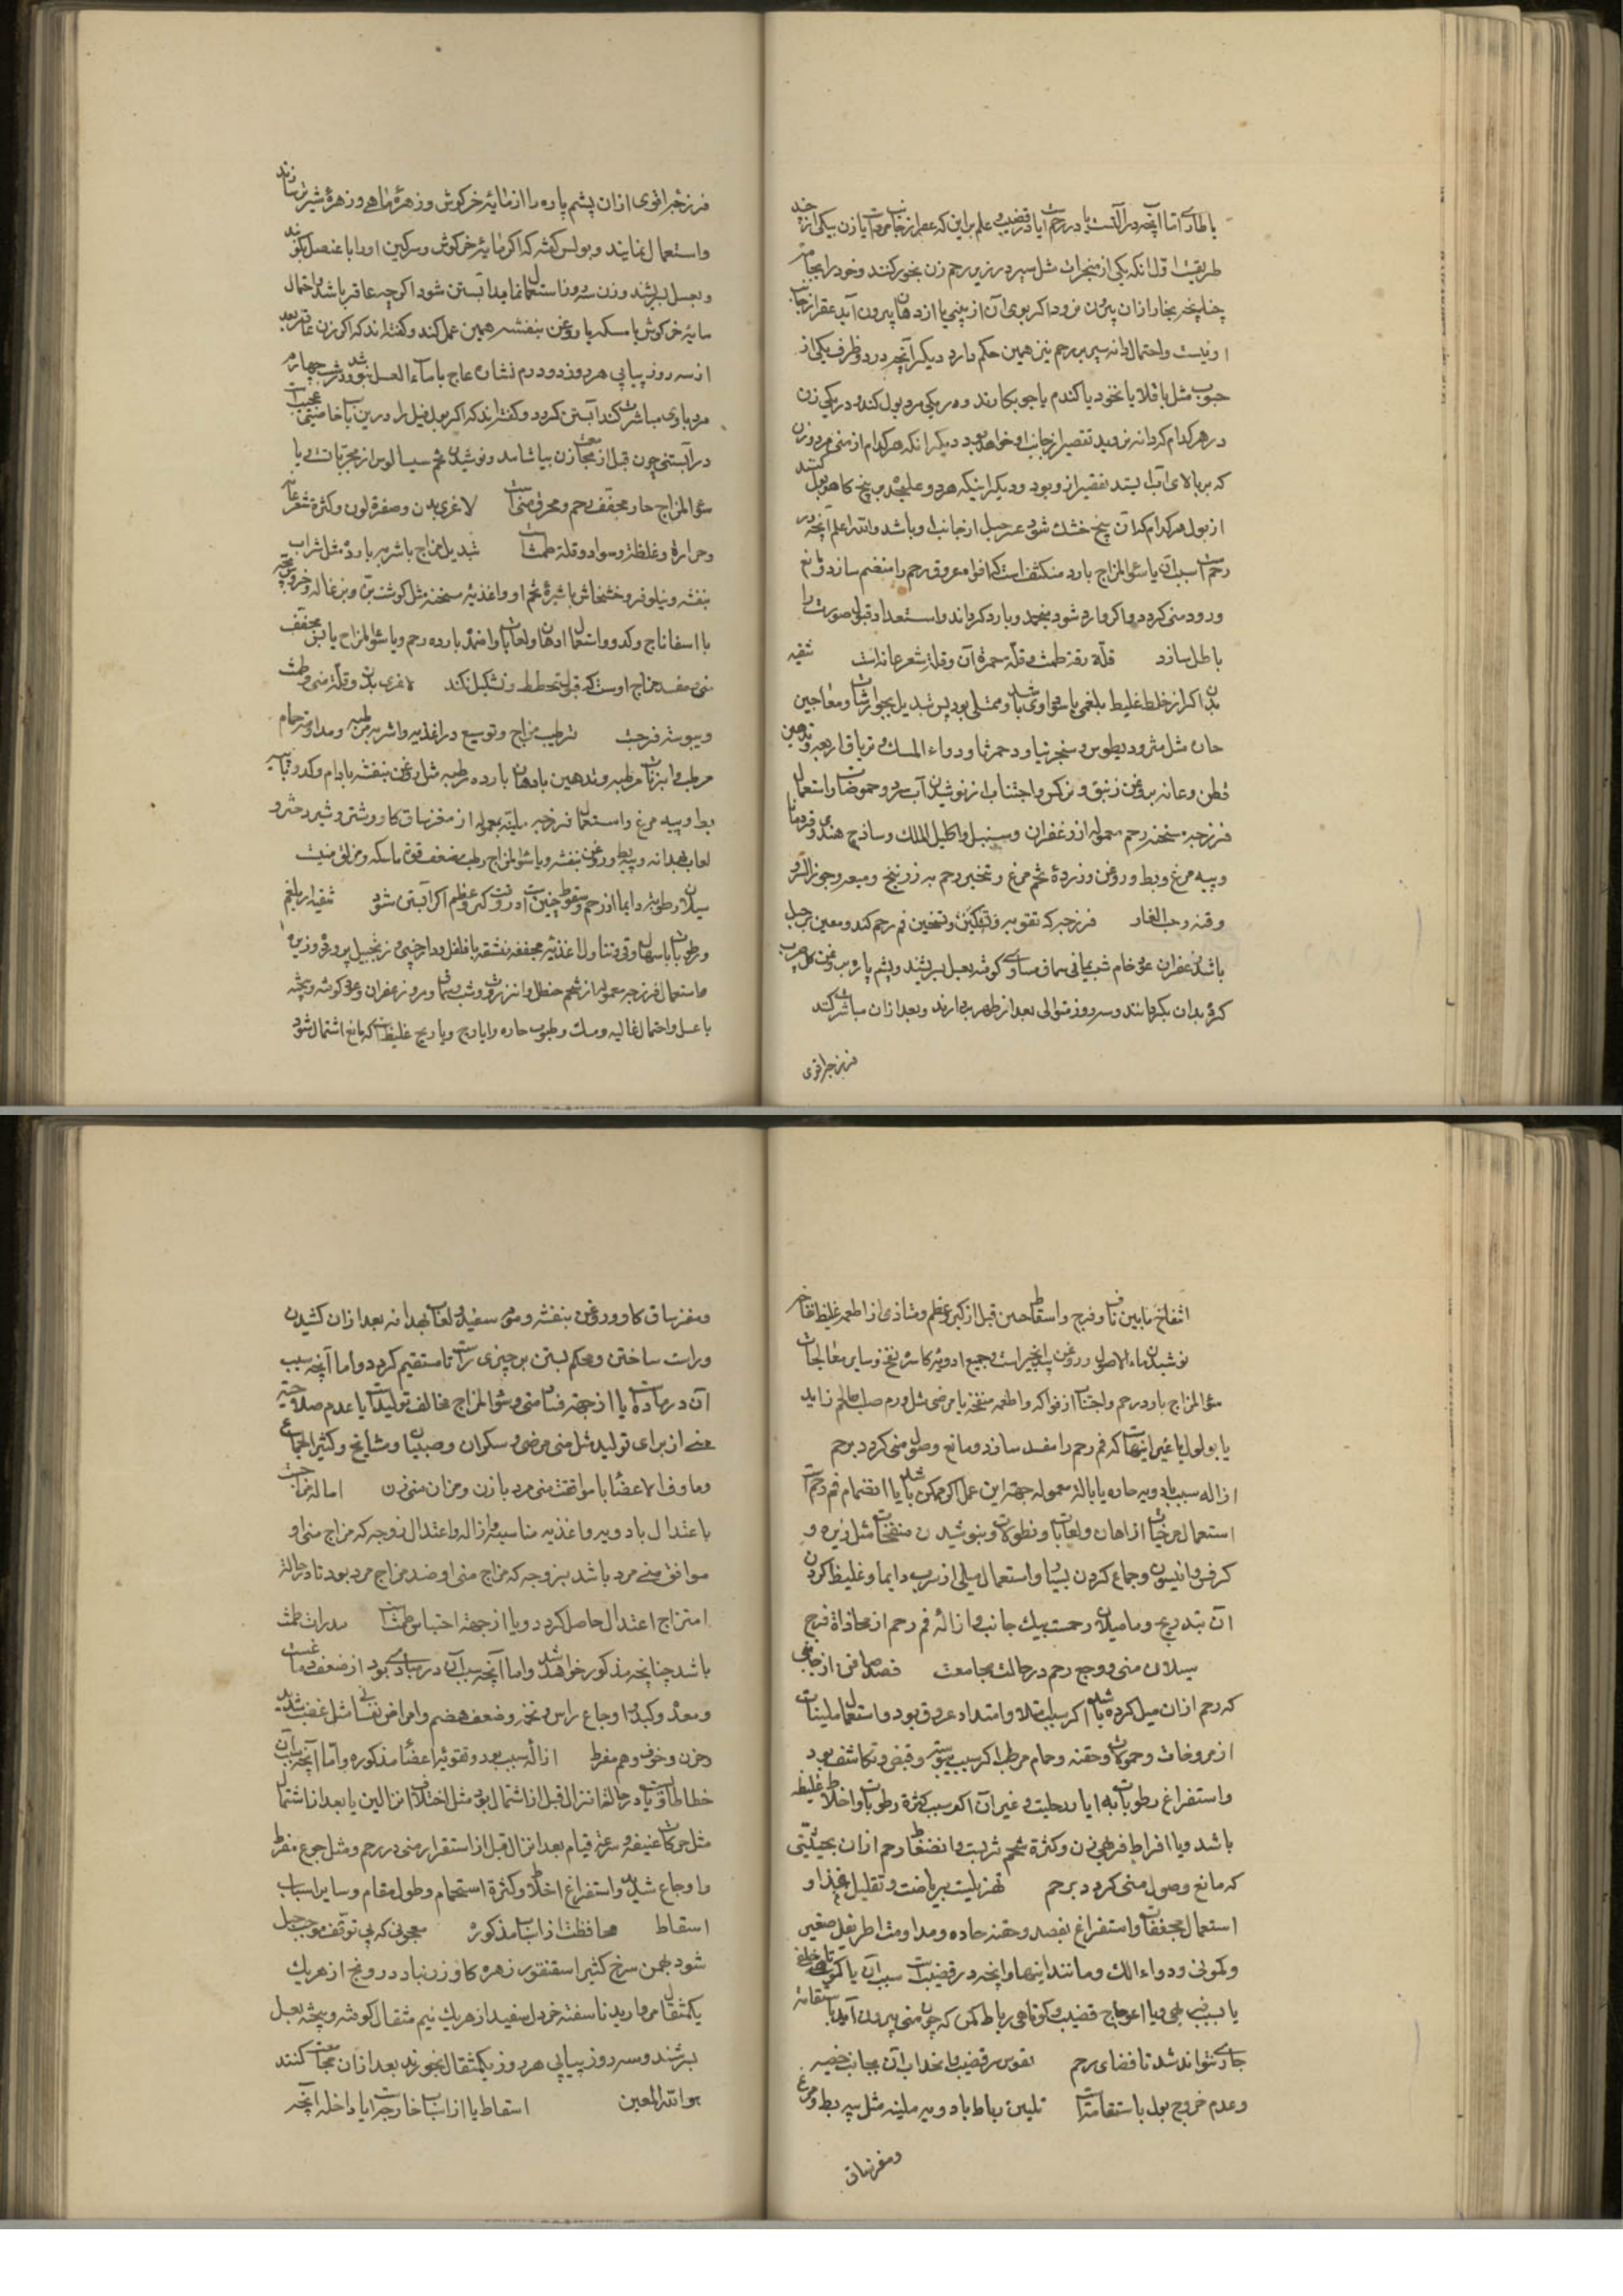 یا طاری اما آنچه در آلتست یا در رحمست یا در قضیب و علم براین که عقر از جانب مردست یا زن بیکی از چند
طریقست اول آنکه یکی از مبخرات مثل سپند در زیر رحم زن بخور کنند و خود را بجامه
چنانچه بخار ازان بیرون نرود اگر بوی آن از بینی یا از دهان بیرون آید عقر از جانب
او نیست و احتمال دانه سیر برحم نیز همین حکم دارد دیگر آنچه در دو ظرف یکی از
حبوب مثل باقلا یا نخود یا گندم یا جو بکارند و در یکی مرد بول کند و در یکی زن
در هر کدام که دانه نروید تقصیر از جانب او خواهد بود دیگر آنکه هر کدام از منی مرد و زن
که بر بالای آب ایستد تقصیر از و بود و دیگر اینکه هر دو علیحده بر بیخ کاهو بول کنند
از بول هر کدام که آن بیخ خشک شود عسر حبل از جانب او باشد والله اعلم آنچه در
رحمست سبب آن یا سوء المزاج بارد متکثف است که افواه عروق رحم را منضم سازد و مانع
ورود منی گردد و اگر وارد شود منجمد و بارد گرداند و استعداد قبول صورت را
باطل سازد قلة رقة طمث و قلة حمرة آن و قلة شعر عانه است تنقیه
بدن اگر از خلط غلیظ بلغمی یا سوداوی باشد و ممتلی بود پس تبدیل بجوارشات و معاجین
حاره مثل مثرودیطوس و سنجرنیا و دحمرثا و دواء المسک و تریاق اربعه و تدهین
قطن و عانه بروغن زنبق و نرکس و اجتناب از نوشیدن آب سرد و حموضات و استعمال
فرزجه مسخنه رحم معموله از زعفران و سنبل و اکلیل الملک و ساذج هندی و قردمانا
و پیه مرغ و بط و روغن و زرده تخم مرغ و تبخیر رحم به زرنیخ و میعه و جوز السرو
و قنه و حب الغار فرزجه که تقویه و تفکین و تسخین فم رحم کند و معین بر حبل
باشد زعفران عود خام شب یمانی سماق مساوی کوفته بعسل بسرشند و پشم پاره بروغن کل چرب
کرده بدان بگردانند و سه روز متوالی بعد از طهر بردارند و بعد ازان مباشرت کنند
فرزجه اقوی
فرزجه اقوی ازان پشم پاره را از مایه خرکوش و زهره ماهی و زهره شیر تر سازند
و استعمال نمایند و بولس گفته که اگر مایه خرکوش و سرکین او را با عنصل کوفته
و بعسل بسرشند و زن سه روز استعمال نماید آبستن شود اگرچه عاقر باشد و احتمال
مایه خرکوش با مسکه یا روغن بنفشه همین عمل کند و گفته‌اند که اگر زن عاقر بعد
از سه روز پیاپی هر روز دو درم نشاره عاج با ماء العسل بنوشد و در شب چهارم
مرد با وی مباشرت کند آبستن گردد و گفته‌اند که اگر بول فیل را در این باب خاصیتی عجیبست
در آبستنی چون قبل از مجامعت زن بیاشامد و نوشیدن تخم سیسالیوس از مجربات و یا
سوء المزاج حار مجفف رحم و محرق منی است لاغری بدن و صفرة لون و کثرة شعر عانه
و حرارة و غلظة و سواد و قلة طمث است تبدیل مزاج باشربه بارده مثل شراب
بنفشه و نیلوفر و خشخاش با شیره تخم او و اغذیه مسخنه مثل گوشت بره و بزغاله و خروس بچه
با اسفاناج و کدو و استعمال ادهان و لعابات و اضمده بارده رحم و یا سوء المزاج یابس مجفف
منی و مفسد مزاج اوست که قبول تخطط و تشکیل نکند لاغری بدن و قلة منی و طمث
و یبوسة فرجست ترطیب مزاج و توسیع در اغذیه و اشربه مرطبه و مداومة حمام
مرطب و ابزنات مرطبه و تدهین بادهان بارده رطبه مثل روغن بنفشه بادام و کدو و پیه
بط و پیه مرغ و استعمال فرزجه ملینه معموله از مغز ساق گاو و شتر و شیر دختر و
لعاب بهدانه و پیه بط و روغن بنفشه و یا سوء المزاج رطب مضعف قوة ماسکه و مزلق منیست
سیلان رطوبة دایما از رحم و سقوط جنین است در وقت کبر و عظم اگر آبستن شود تنقیه از بلغم
و رطوبات باسهال و قی و تناول اغذیه مجففه منشفه با فلفل و دارچینی و زنجبیل پرورده و زیره
و استعمال فرزجه معموله از شحم حنظل و انزروت و شب و سماق و مر و زعفران و عود کوفته و بیخته
با عسل و احتمال غالیه و مسک و طیوب حاره و ایارج و یا ریح غلیظ است که مانع اشتمال شود
انتفاخ مابین ناف و فرج و اسقاط حمل قبل از کبر و عظم و متاذی از اطعمه غلیظ نفاخ
نوشیدن ماء الاصول و روغن بیدانجیر است و جمیع ادویه کاسره نفخ و سایر معالجات
سوء المزاج بارد رحم و اجتناب از فواکه و اطعمه منفخه یا مرضی مثل ورم صلب یا لحم زاید
یا بولول یا غیر اینهاست که فم رحم را مفسد سازد و مانع وصول منی گردد برحم
ازاله سبب بادویه حاره یا بالة معموله جهة این عمل اگر ممکن باشد یا انضمام فم رحمست
استعمال مرخیات از ادهان و لعابات و نطولات و بنوشیدن منفخات مثل زیره و
کرفس و انیسون و جماع کردن بسیار و استعمال میلی از سرب دایما و غلیظ کردن
آن بتدریج و یا میلان رحمست بیک جانب و ازاله فم رحم از محاذاة فرج
سیلان منی و وجع رحم در حالت مجامعت فصد صافن از جانبی
که رحم ازان میل کرده باشد اگر سبب امتلا و امتداد عروق بود و استعمال ملینات
از مروخات و حمولات و حقنه و حمام مرطب اگر سبب یبوسة و قبض و تکاثف بود
و استفراغ رطوبات به ایارج و غیر آن اگر سبب کثرة رطوبات و اخلاط غلیظه
باشد و یا افراط فربهی زن و کثرة شحم ثربست و انضغاط رحم ازان بحیثیتی
که مانع وصول منی گردد برحم تهزیلست بریاضت و تقلیل غذا و
استعمال مجففات و استفراغ بفصد و حقنه حاده و مداومة اطریفل صغیر
و کمونی و دواء اللک و مانند اینها و آنچه در قضیبست سبب آن یا کوتاهی خلقی
یا بسبب فربهی و یا اعوجاج قضیب و کوتاهی رباط کمره که چون منی بیرون آید باستقامة
جاری نتواند شد تا فضای رحم تقوس قضیب و انجذاب آن بجانب خصیه
و عدم خروج بول باستقامتست تلیین رباط بادویه ملینه مثل پیه بط و مرغ
و مغز ساق
و مغز ساق گاو و روغن بنفشه و موم سفید و لعاب بهدانه بعد ازان کشیدن
و راست ساختن و محکم بستن بر چیزی راست تا مستقیم گردد و اما آنچه سبب
آن در ماده است یا از جهة فساد منی و سوء المزاج مخالف تولیدست یا عدم صلاحیة
منی از برای تولید مثل منی مرضی و سکران و صبیان و مشایخ و کثیر الجماع
و ماوف الاعضا یا موافقت منی مرد با زن و مزاج منی زن اماله مزاجست
باعتدال بادویه و اغذیه مناسبه و ازاله و اعتدال زوجه که مزاج منی او
موافق منی مرد باشد بزوجه که مزاج منی او ضد مزاج مرد بود تا در حالة
امتزاج اعتدال حاصل گردد و یا از جهة احتباس طمث است مدرات طمث
باشد چنانچه مذکور خواهد شد و اما آنچه سبب آن در مبادی بود از ضعف دماغست
و معده و کبد و اوجاع راس و تخمه و ضعف هضم و امراض نفسانی مثل غضب شدید
و حزن و خوف و هم مفرط ازاله سبب بود و تقویة اعضا مذکوره و اما آنچه سبب آن
خطا طاریست یا در حالة انزال قبل از اشتمال بود مثل اختلاف انزالین یا بعد از اشتمال
مثل حرکات عنیفه و سرعة قیام بعد انزال قبل از استقرار منی در رحم و مثل جوع مفرط
و اوجاع شدید و استفراغ اخلاط و کثرة استحمام و طول مقام و سایر اسباب
اسقاط محافظت از اسباب مذکوره معجونی که بی توقف موجب حبل
شود بهمن سرخ کثیرا سقنقور زهره گاو زرنباد درونج از هریک
یکمثقال مروارید ناسفته خردل سفید از هریک نیم مثقال کوفته و بیخته بعسل
بسرشند و سه روز پیاپی هر روز یکمثقال بخورند بعد ازان مجامعت کنند
هو الله المعین اسقاط یا از اسباب خارجه است یا داخله آنچه